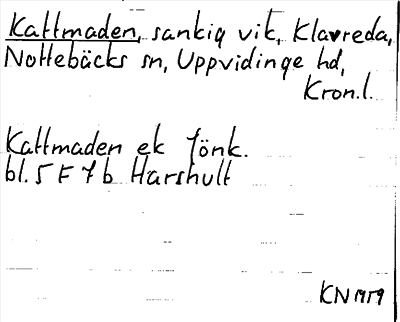 Kattmaden, sankig vik, Klavreda,
Nottebäcks sn, Uppvidinge hd,
Kron.l.
Kattmaden ek Jönk.
bl. 5 F 7 b Harshult
KN 1959